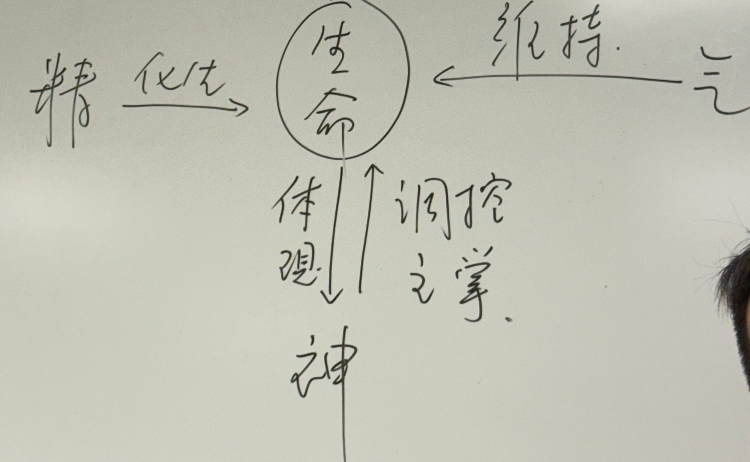 精 化生 生命 维持. 气
体现 调控
主掌.
神